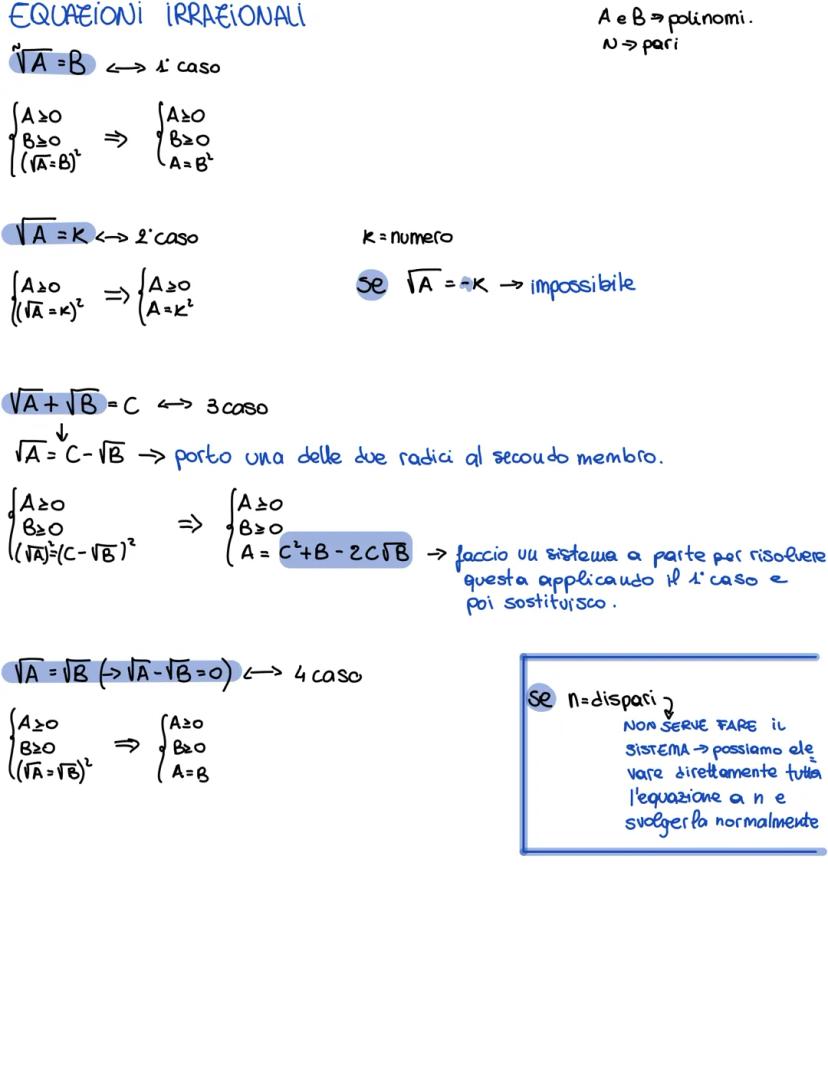 EQUAZIONI IRRAZIONALI
A e B ⇒ polinomi.
N ⇒ pari
ⁿ√A = B ↔ 1° caso
{A≥0 ⇒ {A≥0
B≥0 B≥0
(√A=B)² A=B²
√A = K ↔ 2° caso K = numero
{A≥0 ⇒ {A≥0
(√A=K)² A=K²
se √A = -K → impossibile
√A + √B = C ↔ 3 caso
↓
√A = C-√B → porto una delle due radici al secondo membro.
{A≥0 ⇒ {A≥0
B≥0 B≥0
(√A)²=(C-√B)² A = C²+B-2C√B → faccio un sistema a parte per risolvere
questa applicando il 1° caso e
poi sostituisco.
√A = √B (→ √A-√B=0) ↔ 4 caso
{A≥0 ⇒ {A≥0
B≥0 B≥0
(√A=√B)² A=B
se n=dispari
NON SERVE FARE il
SISTEMA → possiamo ele
vare direttamente tutta
l'equazione a n e
svolgerla normalmente